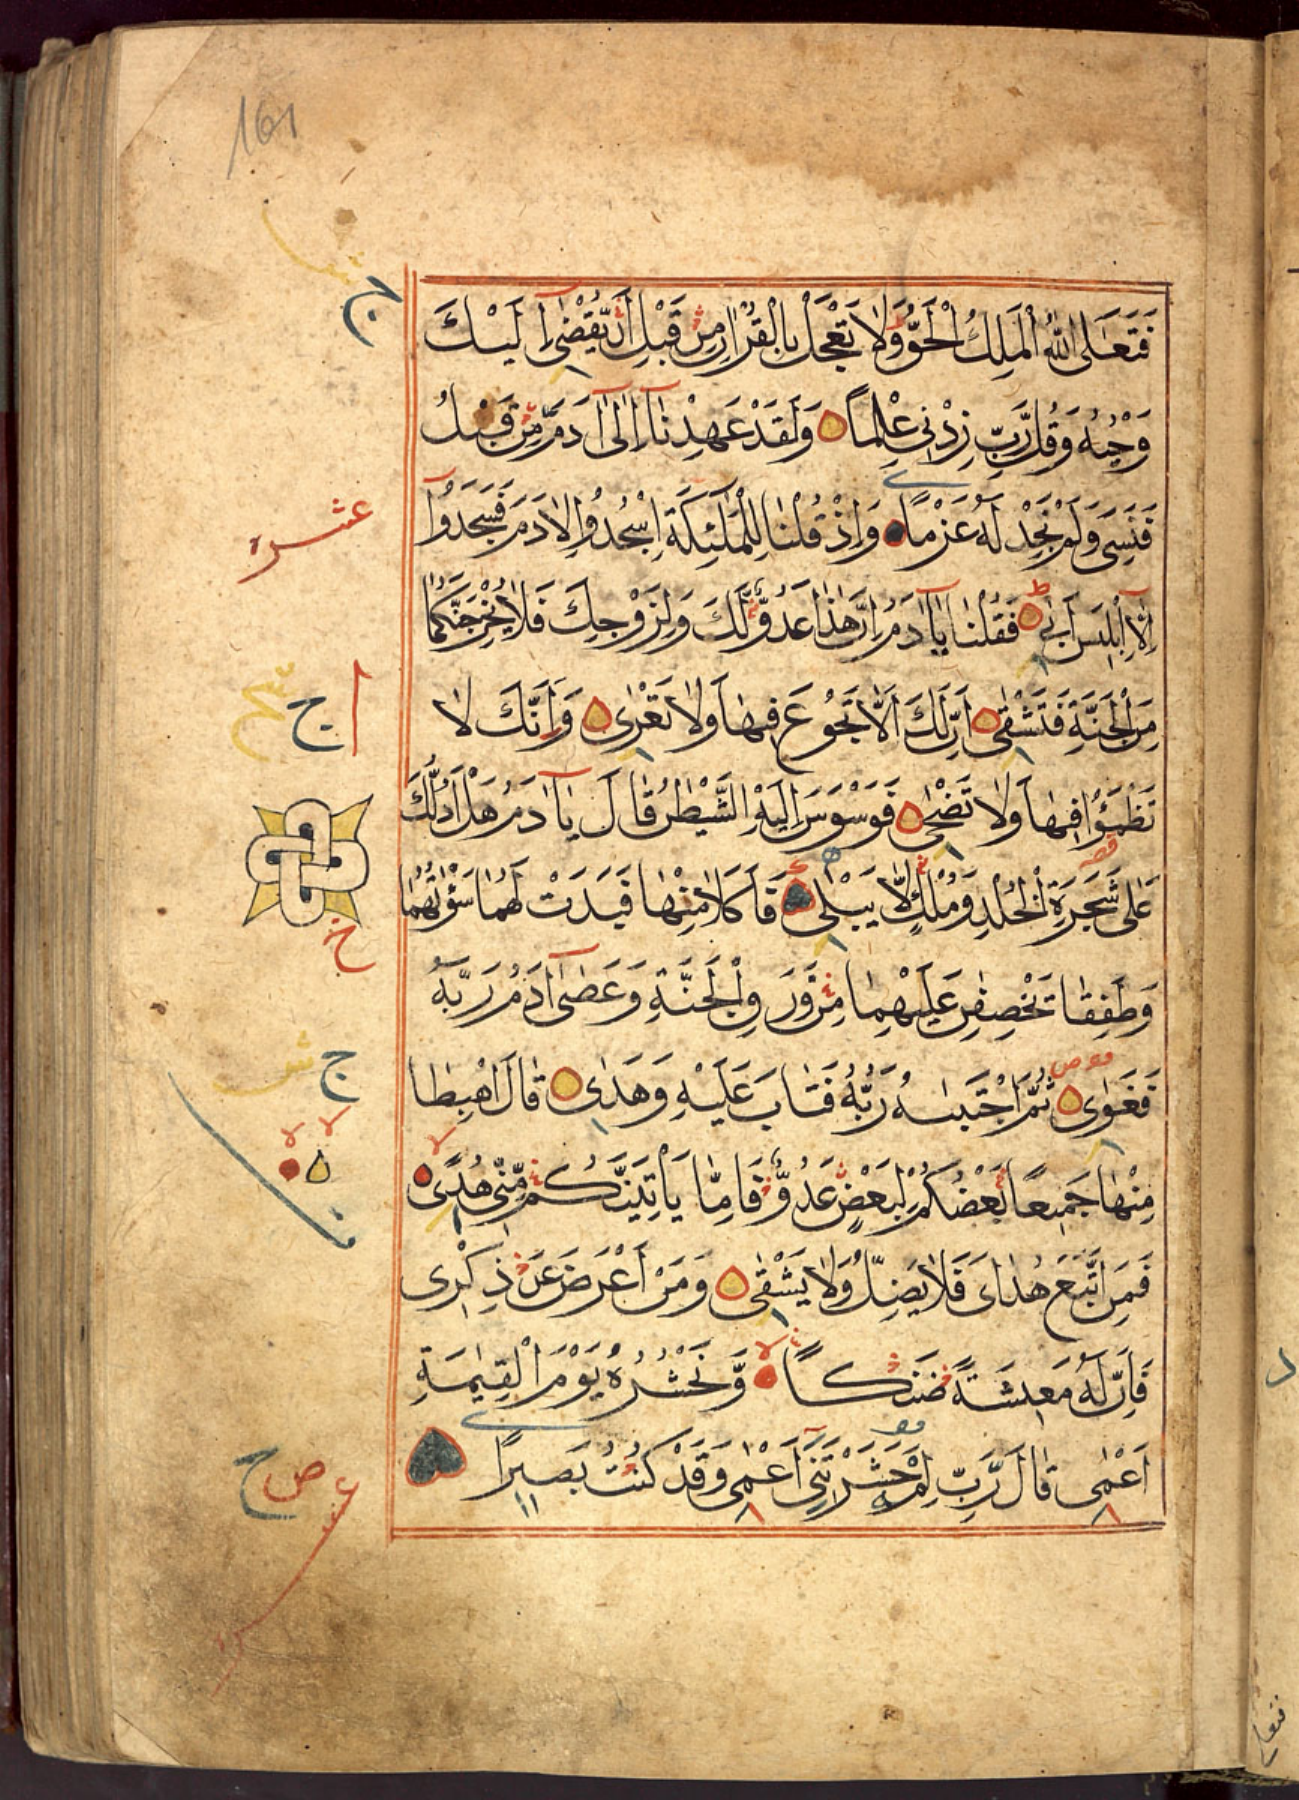 161
فَتَعَالَى اللّٰهُ الْمَلِكُ الْحَقُّ وَلَا تَعْجَلْ بِالْقُرْاٰنِ مِنْ قَبْلِ اَنْ يُّقْضٰۤى اِلَيْكَ
وَحْيُهُ وَقُلْ رَّبِّ زِدْنِى عِلْمًا وَلَقَدْ عَهِدْنَاۤ اِلٰۤى اٰدَمَ مِنْ قَبْلُ
فَنَسِىَ وَلَمْ نَجِدْ لَهُ عَزْمًا وَاِذْ قُلْنَا لِلْمَلٰۤئِكَةِ اسْجُدُوا لِاٰدَمَ فَسَجَدُوۤا
عشره
اِلَّاۤ اِبْلِيْسَ اَبٰى ط فَقُلْنَا يَاۤ اٰدَمُ اِنَّ هٰذَا عَدُوٌّ لَّكَ وَلِزَوْجِكَ فَلَا يُخْرِجَنَّكُمَا
مِنَ الْجَنَّةِ فَتَشْقٰى اِنَّ لَكَ اَلَّا تَجُوْعَ فِيْهَا وَلَا تَعْرٰى وَاَنَّكَ لَا
تَظْمَؤُا فِيْهَا وَلَا تَضْحٰى فَوَسْوَسَ اِلَيْهِ الشَّيْطٰنُ قَالَ يَاۤ اٰدَمُ هَلْ اَدُلُّكَ
عَلٰى شَجَرَةِ الْخُلْدِ وَمُلْكٍ لَّا يَبْلٰى فَاَكَلَا مِنْهَا فَبَدَتْ لَهُمَا سَوْاٰتُهُمَا
وَطَفِقَا يَخْصِفٰنِ عَلَيْهِمَا مِنْ وَّرَقِ الْجَنَّةِ وَعَصٰۤى اٰدَمُ رَبَّهُ
فَغَوٰى ثُمَّ اجْتَبٰيهُ رَبُّهُ فَتَابَ عَلَيْهِ وَهَدٰى قَالَ اهْبِطَا
مِنْهَا جَمِيْعًا بَعْضُكُمْ لِبَعْضٍ عَدُوٌّ فَاِمَّا يَاْتِيَنَّكُمْ مِّنِّى هُدًى
فَمَنِ اتَّبَعَ هُدَاىَ فَلَا يَضِلُّ وَلَا يَشْقٰى وَمَنْ اَعْرَضَ عَنْ ذِكْرِى
فَاِنَّ لَهُ مَعِيْشَةً ضَنْكًا وَّنَحْشُرُهُ يَوْمَ الْقِيٰمَةِ
اَعْمٰى قَالَ رَبِّ لِمَ حَشَرْتَنِىۤ اَعْمٰى وَقَدْ كُنْتُ بَصِيْرًا